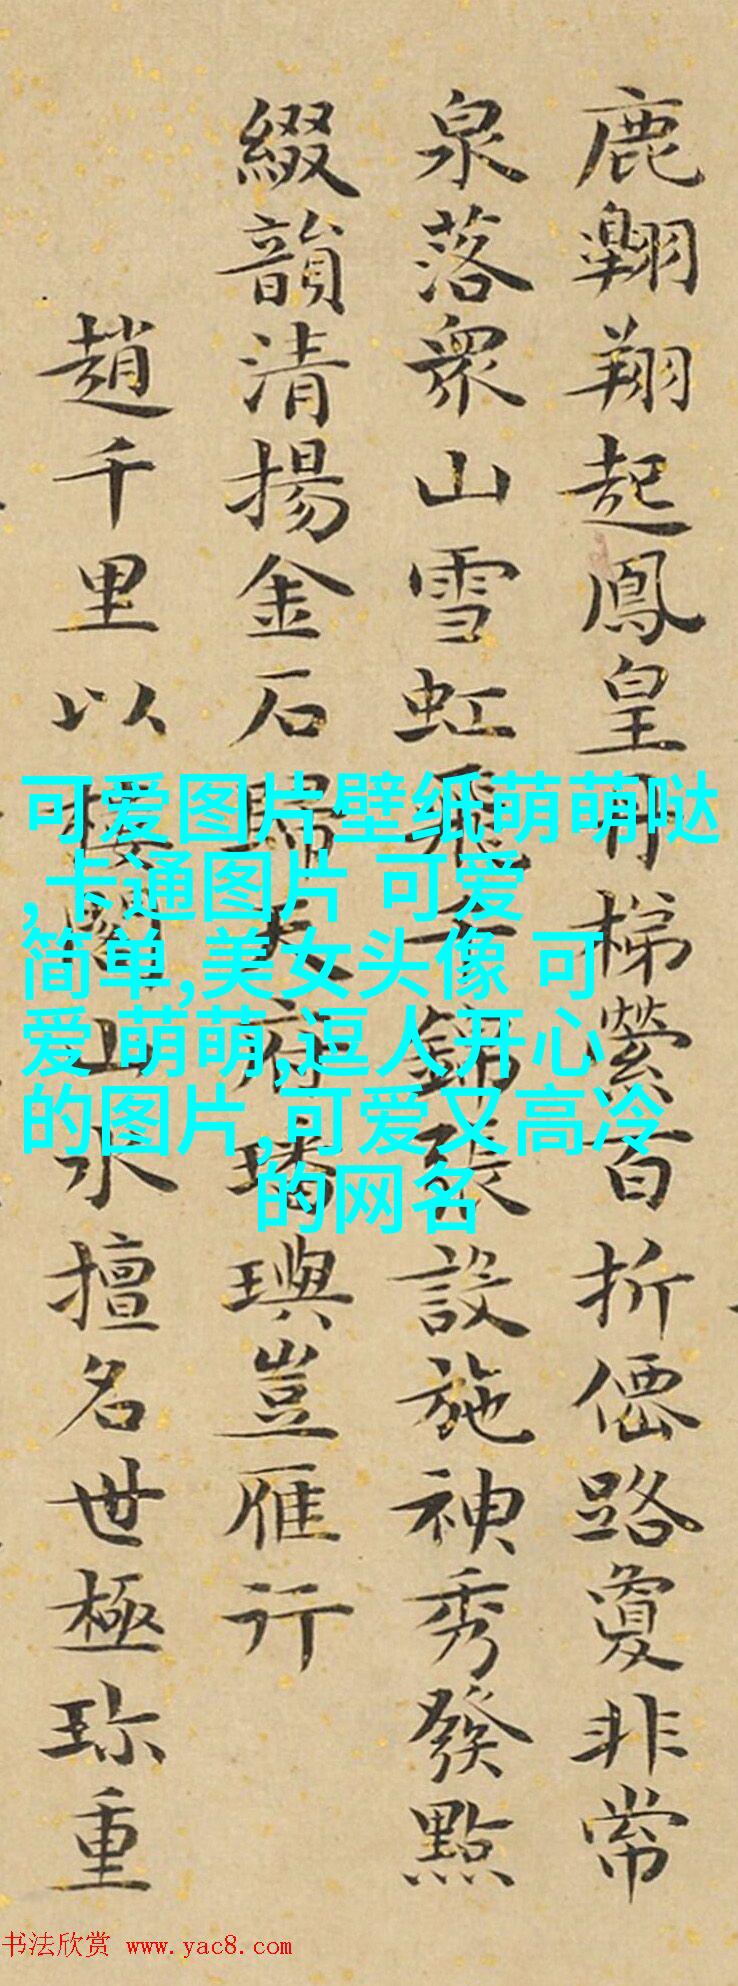 鹿翺翔起鳳皇丹梯縈百折僊路敻非常
泉落眾山雪虹飛千錦張設施神秀發點
綴韻清揚金石歸天府璠璵豈雁行
趙千里以樓閣山水擅名世極珎重
可爱图片壁纸萌萌哒
,卡通图片 可爱
简单,美女头像 可
爱 萌萌,逗人开心
的图片,可爱又高冷
的网名
书法欣赏 www.yac8.com